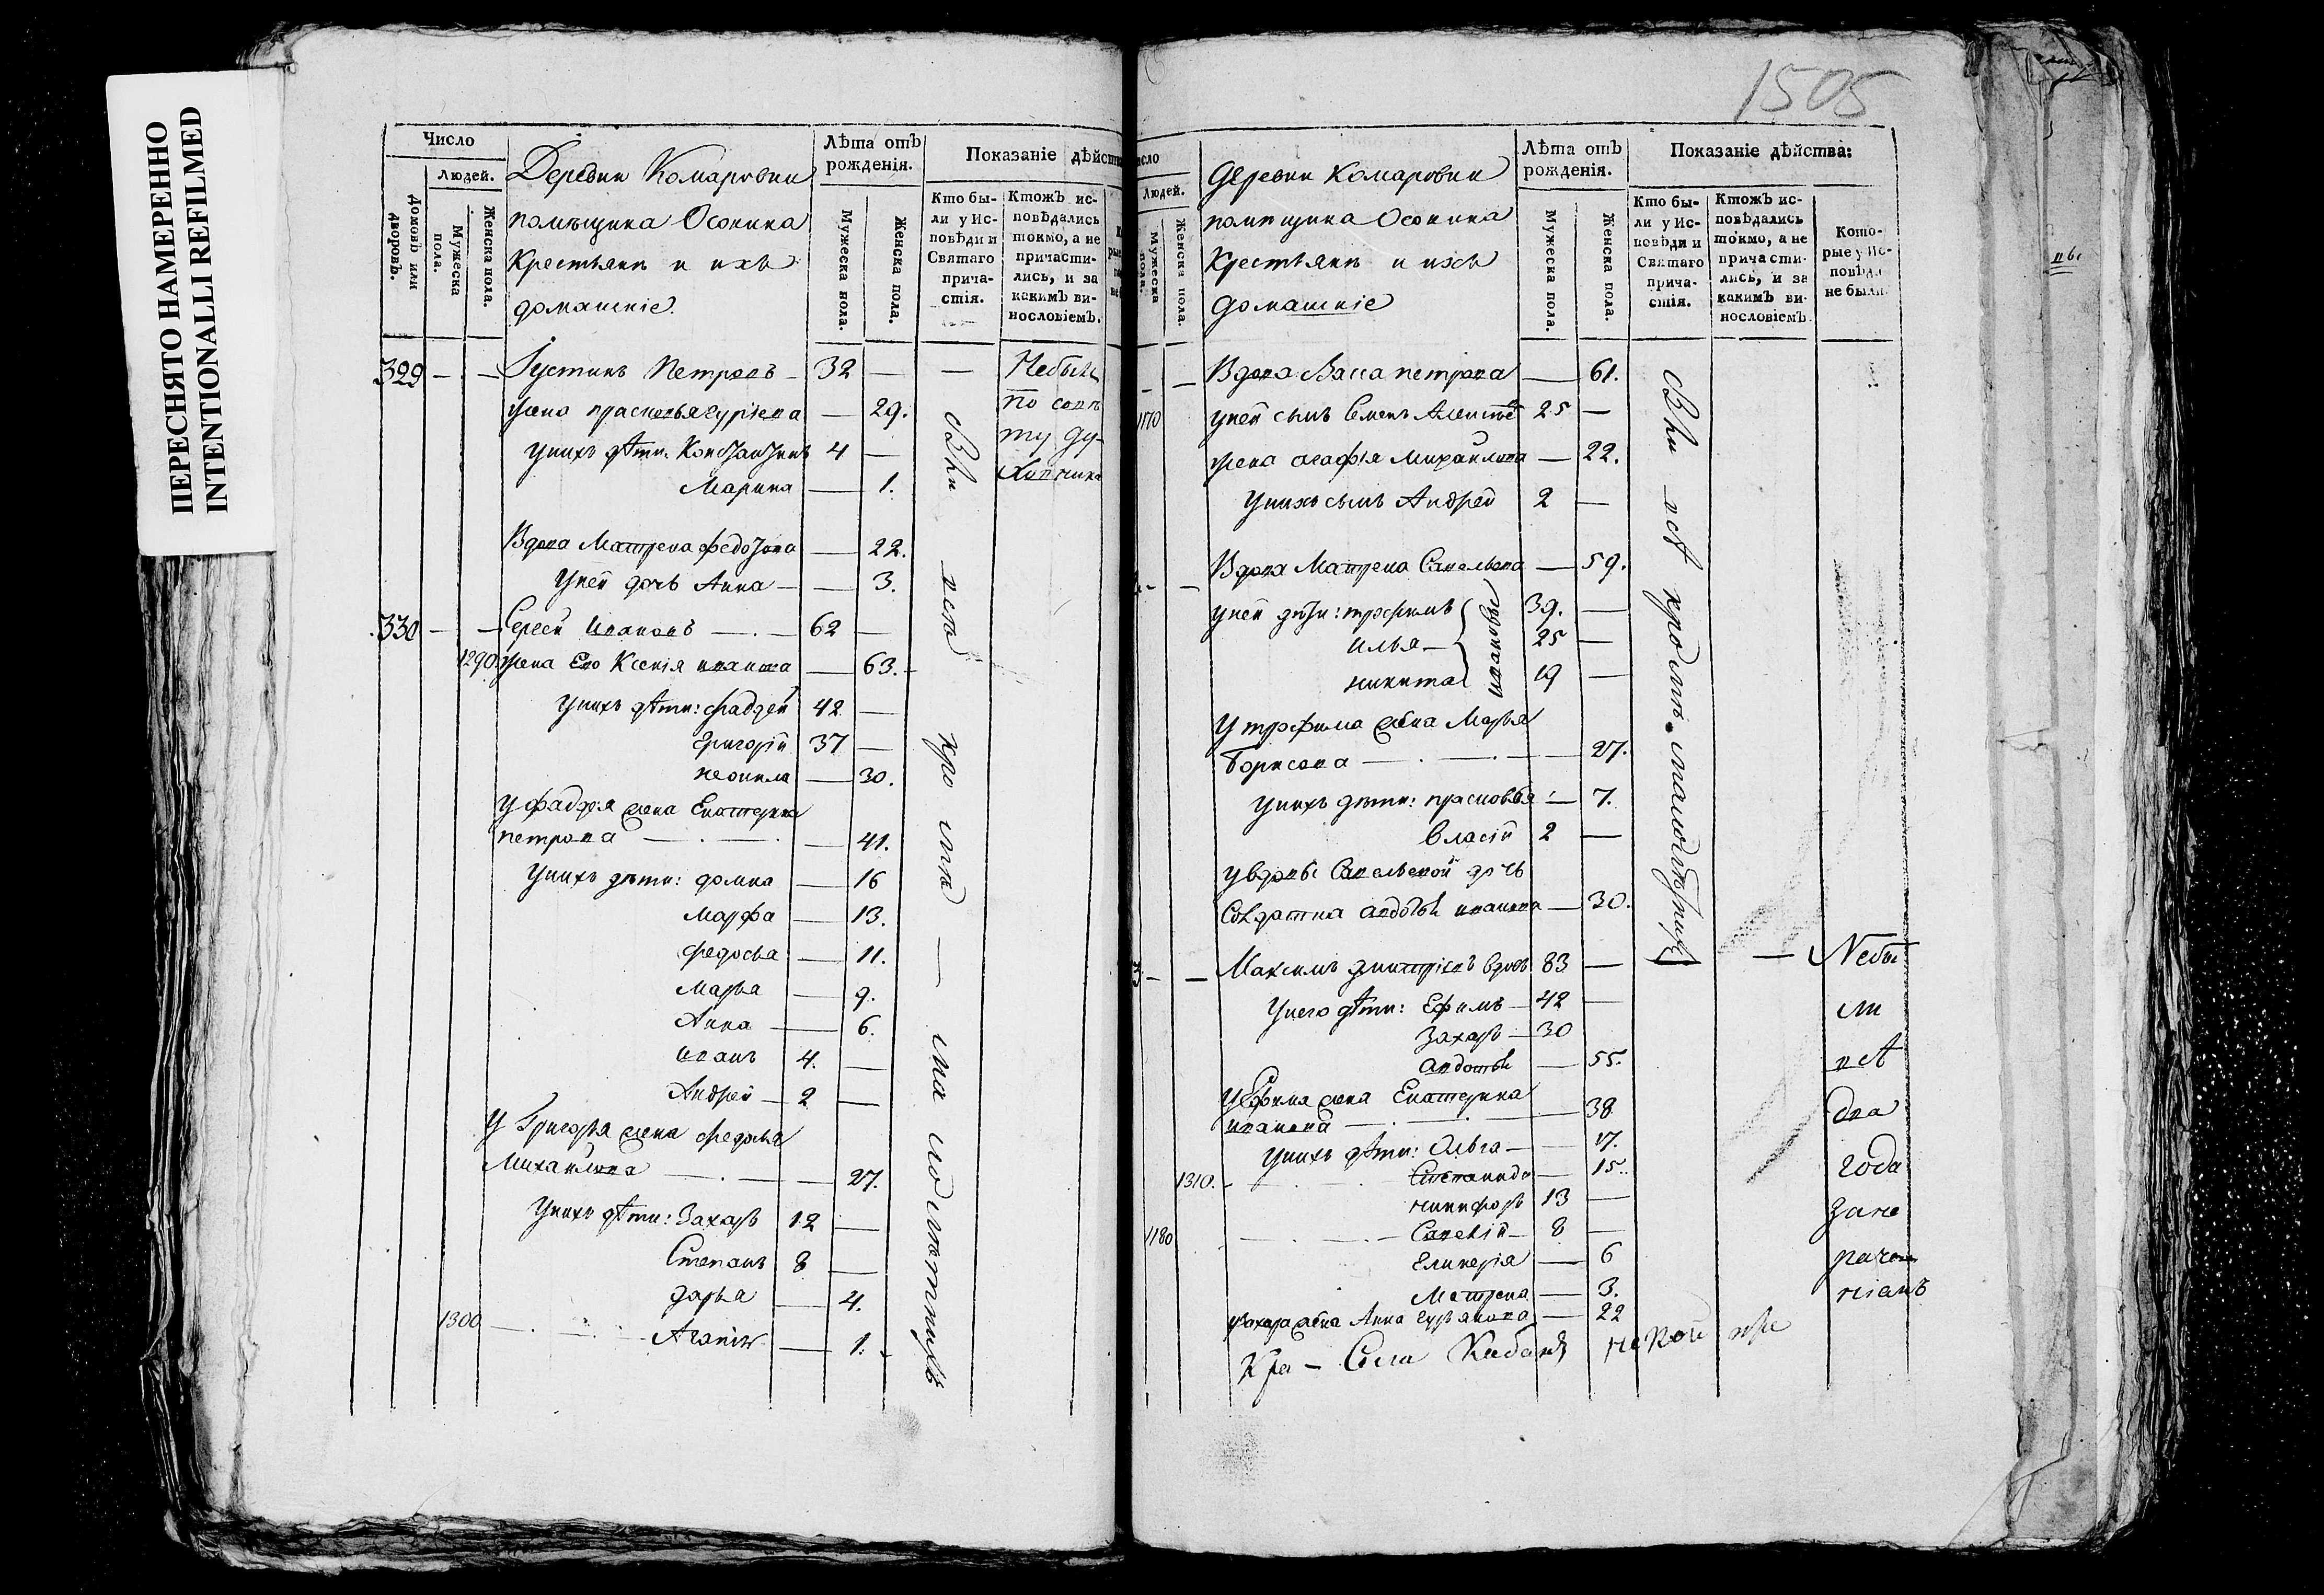 ПЕРЕСНЯТО НАМЕРЕННО
INTENTIONALLI REFILMED
1505
Число
Людей.
Домовъ или дворовъ.
Мужеска пола.
Женска пола.
Деревни Комаровки
помѣщика Осокина
Крестьянъ и ихъ
домашніе
Лѣта отъ рожденія.
Мужеска пола.
Женска пола.
Показаніе дѣйств
Кто бы-
ли у Ис-
повѣди и
Святаго
прича-
стія.
Ктожъ ис-
повѣдались
токмо, а не
причасти-
лись, и за
какимъ ви-
нословіемъ.
329 — — Іустинъ Петровъ — 32 — — Небыл
жена прасковья гурїева — 29. по совѣ
у нихъ дѣти: Константинъ 4 — ту ду-
Марина — 1. ховника
Вдова Матрена федотова — 22.
У ней дочь Анна — — 3.
330 — — Сергей Ивановъ — 62 —
1290. жена Его Ксенія иванова — 63.
У нихъ дѣти: фаддей 42 —
Григорій 37 —
неонила — 30.
У фаддея жена Екатерина
петрова — — 41.
У нихъ дѣти: домна — 16
Марфа — 13.
федосья — 11.
Марья — 9.
Анна — 6.
иванъ 4. —
Андрей — 2 —
У Григорья жена федосья
Михайлова — — 27.
У нихъ дѣти: Захаръ 12 —
Степанъ 8 —
дарья — 4.
1300 — — 1.
Всѣ кромѣ — малолѣтныхъ
исло
Людей.
Мужеска пола.
Женска пола.
Деревни Комаровки
помѣщика Осокина
Крестьянъ и ихъ
домашніе
Лѣта отъ рожденія.
Мужеска пола.
Женска пола.
Показаніе дѣйства:
Кто бы-
ли у Ис-
повѣди и
Святаго
прича-
стія.
Ктожъ ис-
повѣдались
токмо, а не
причасти-
лись, и за
какимъ ви-
нословіемъ.
Кото-
рые у Ис-
повѣди
не были.
— — Вдова Васса петрова — 61.
1170 у ней сынъ Семенъ 25 —
жена агафія Михайлова — 22.
У нихъ сынъ Андрей 2 —
— — Вдова Матрена Савельева — 59.
у ней дѣти: трофимъ 39. —
илья — 25 —
никита 19 —
ивановы
У трофима жена Марья
Борисова — — 27.
У нихъ дѣти: прасковья — 7.
власій 2 —
у вдовы Савельевой дочь
Солдатка авдотья иванова — 30.
кромѣ малолѣтных
3 — — Максимъ дмитріевъ вдовъ 83 — — Небы
У него дѣти: Ефимъ — 42 — ли
Захаръ — 30
авдотья — 55.
У Ефима жена Екатерина
иванова — — 38 два
У нихъ дѣти: Ольга — — 17. года
1310. — — 15.
никифоръ 13 — за не
1180 — — Савелій — 8 —
Гликерія — 6 раче
Матрена — 3. ніемъ
у захара жена Анна гурьянова — 22
Села